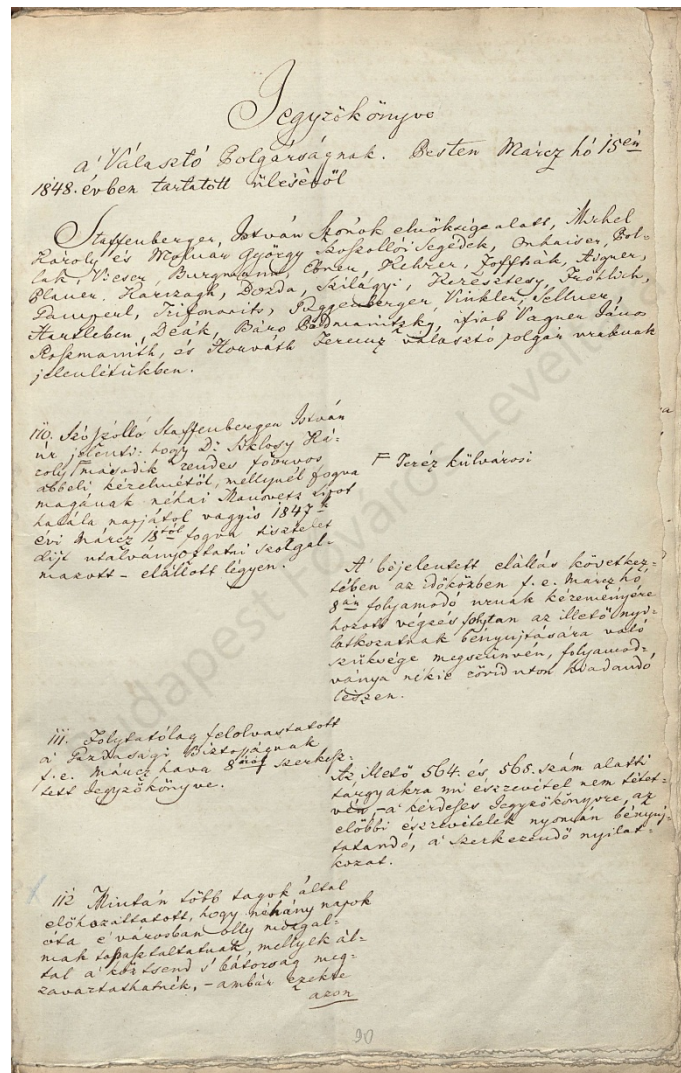 Jegyzőkönyve
a' Választó Polgárságnak. Pesten Márcz hó 15én
1848. évben tartatott üléséről
Staffenberger, István Szónok elnöksége alatt, Mirhel
Károly, és Molnár György Szószollói Segédek,
lak, Vieser, Burgmann, Ebner, Kehrer, Aigner,
Plaver, Harizagh, Dozda, Szilágyi, Keresztesy, Fröhlich,
Pamperl, Trifonovits, Vinkler, Sellner,
Hartleben, Deák, Báró ifiab Vagner János
és Horváth Ferencz választó polgár uraknak
jelenlétükben.
110. Szószólló Staffenberger István
úr jelenti: hogy Dr Siklosy Ká-
roly második rendes főorvos
abbeli kérelmétől, mellynél fogva
magának néhai
halála napjától vagyis 1847k
évi Márcz 18tól fogva tiszteleti
dijt utalványoztatni szolgal-
mazott – elállott légyen.
F Teréz külvárosi
A' béjelentett elállás következ-
tében az időközben f. e. Márcz hó
8án folyamodó urnak kérményére
hozott végzés folytan az illető nyi-
latkozatnak bényujtására való
szüksége megszünvén, folyamod-
ványa nékie rövid uton kiadandó
lészen.
111. Folytatólag felolvastatott
a' Gazdasági Biztosságnak
f. e. Márcz hava 8ról szerkesz-
tett Jegyzőkönyve.
Az illető 564. és, 565. szám alatti
tárgyakra mi észrevétel nem tétet-
vén, – a' kérdéses Jegyzőkönyvre, az
előbbi észrevételek nyomán bényuj-
tatandó, a' szerkezendő nyilat-
kozat.
112 Miután több tagok által
előhozattatott, hogy néhány napok
óta e' városban olly mozgal-
mak tapasztaltatnak, mellyek ál-
tal a' köztsend s' bátorság meg-
zavartathatnék, – ambár ezekre
azon
90
Budapest Főváros Levéltára